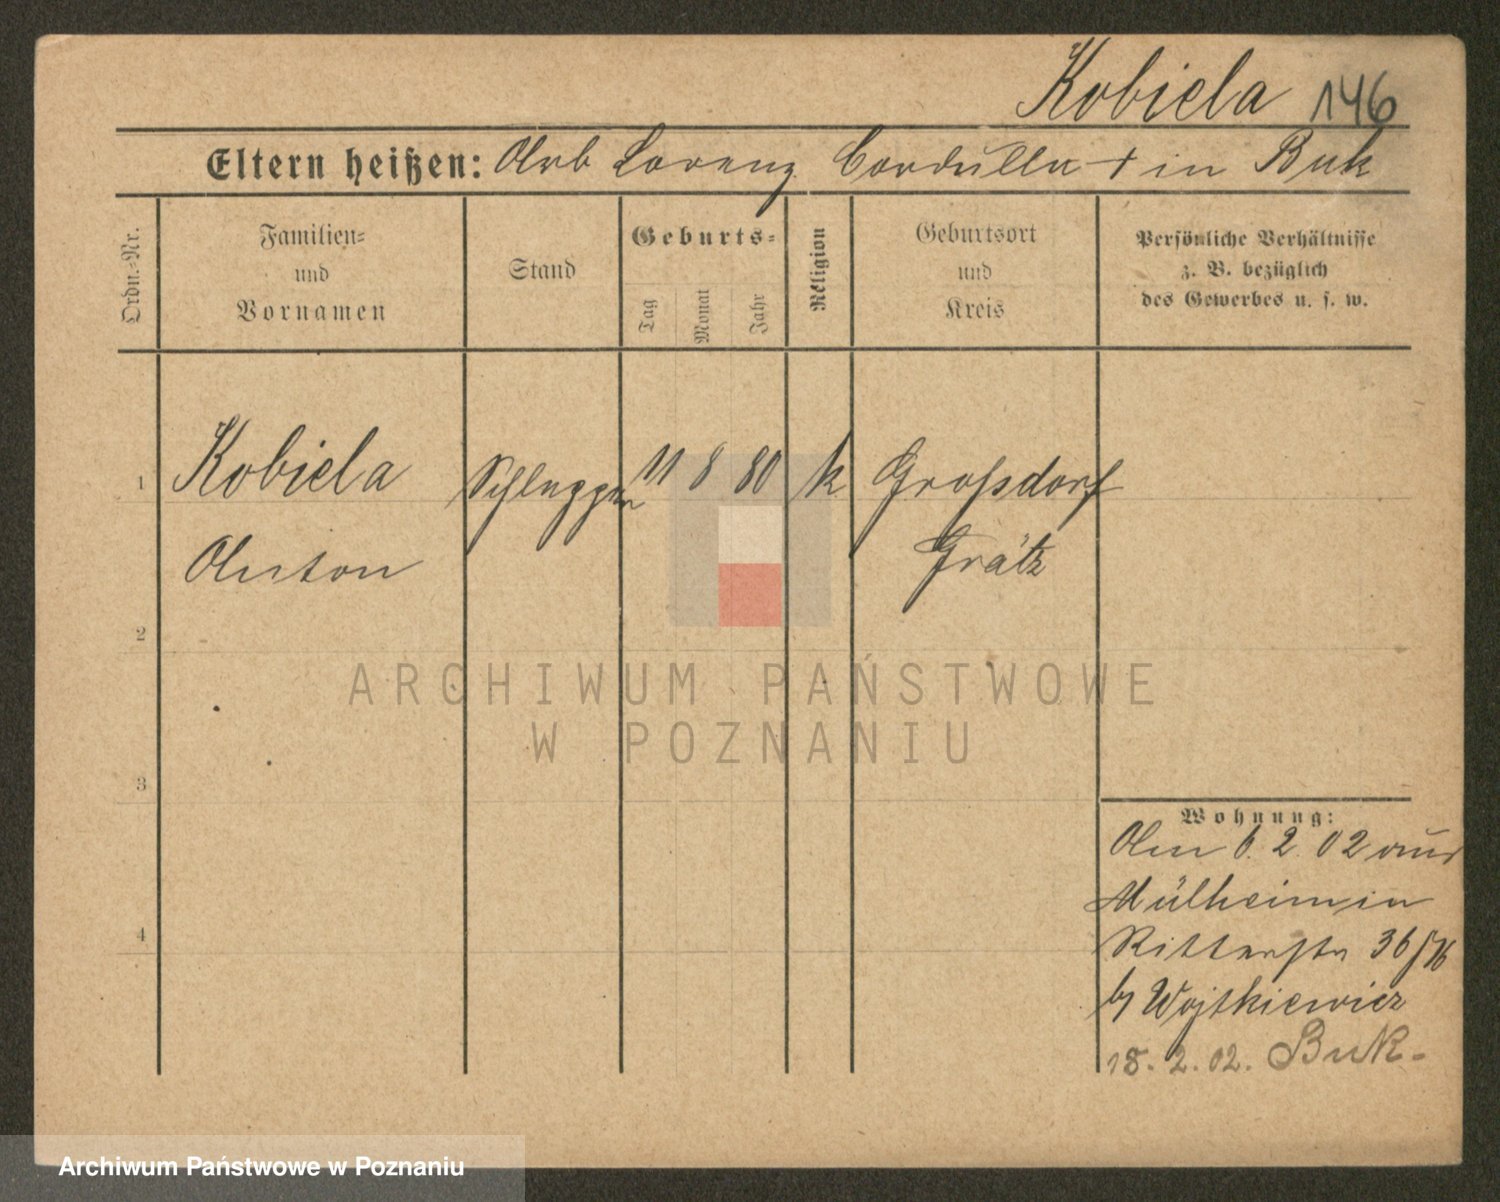 Kobiela 146
Eltern heißen: Arb Lorenz Cordulla + in Buk
Ordn.-Nr.
Familien-
und
Vornamen
Stand
Geburts-
Tag
Monat
Jahr
Religion
Geburtsort
und
Kreis
Persönliche Verhältnisse
z. B. bezüglich
des Gewerbes u. s. w.
1 Kobiela 11 8 80 k Großdorf
Anton Grätz
2
3
4
ARCHIWUM PAŃSTWOWE
W POZNANIU
Wohnung:
Am 6. 2. 02 aus
Mülheim in
Ritterstr 36
by Wojtkiewicz
18. 2. 02. Buk-
Archiwum Państwowe w Poznaniu